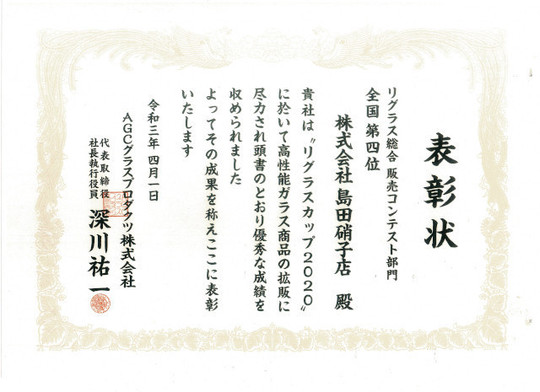 表彰状
リグラス総合 販売コンテスト部門
全国 第四位
株式会社 島田硝子店 殿
貴社は“リグラスカップ2020”
に於いて高性能ガラス商品の拡販に
尽力され頭書のとおり優秀な成績を
収められました
よってその成果を称えここに表彰
いたします
令和三年 四月一日
AGCグラスプロダクツ株式会社
代表取締役
社長執行役員
深川祐一